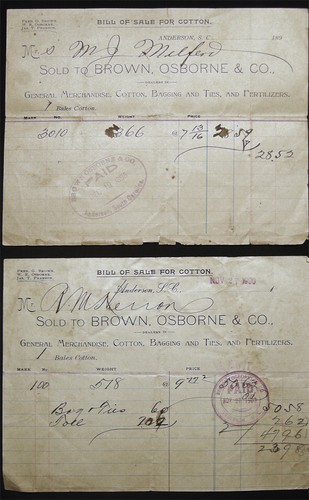 FRED. G. BROWN,
W. F. OSBORNE,
JOS. T. PEARSON.
BILL OF SALE FOR COTTON.
ANDERSON, S. C., 189
M s M J Milford
SOLD TO BROWN, OSBORNE & CO.,
DEALERS IN
GENERAL MERCHANDISE, COTTON, BAGGING AND TIES, AND FERTILIZERS.
1 Bales Cotton.
MARK No. WEIGHT PRICE
3010 366 @ 7 13/16
28.52
BROWN, OSBORNE & CO.
PAID
Anderson, South Carolina
FRED. G. BROWN,
W. F. OSBORNE,
JOS. T. PEARSON.
BILL OF SALE FOR COTTON.
Anderson, S. C.
M R M Herron
SOLD TO BROWN, OSBORNE & CO.,
DEALERS IN
GENERAL MERCHANDISE, COTTON, BAGGING AND TIES, AND FERTILIZERS.
1 Bales Cotton.
MARK No. WEIGHT PRICE
100 518 @
PAID
Bag & Ties 60 5058
Toll 262
4796